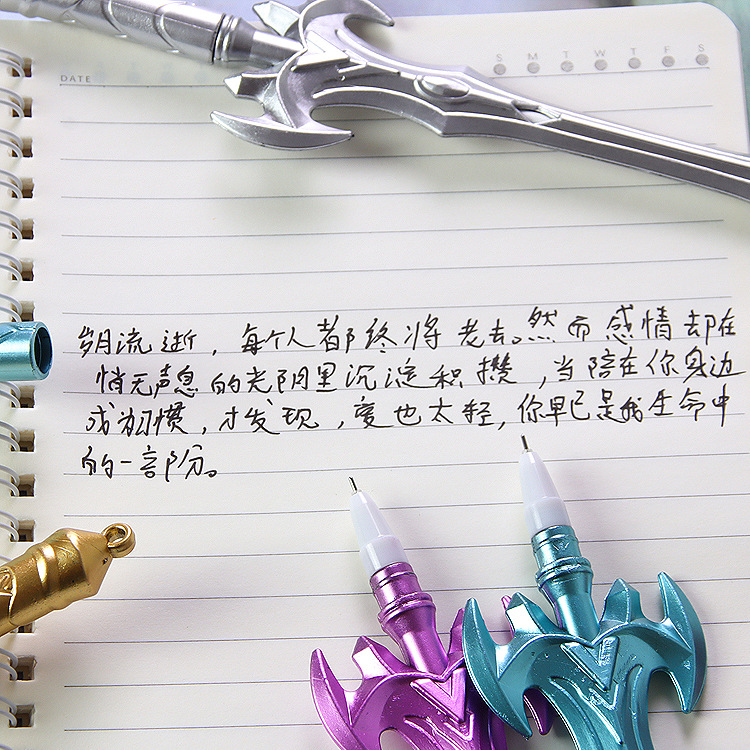 DATE
S M T W T F S
岁月流逝，每个人都终将老去。然而感情却在
悄无声息的光阴里沉淀积攒，当陪在你身边
成为习惯，才发现，爱也太轻，你早已是我生命中
的一部分。